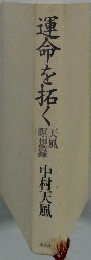 運命を拓く
天風
瞑想録
中村天風